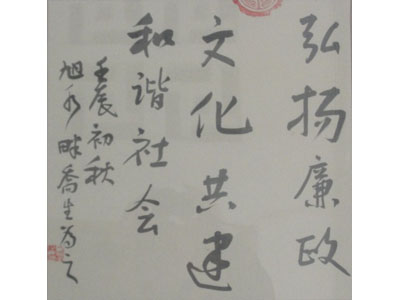 弘扬廉政
文化共建
和谐社会
壬辰初秋
旭水畔乔生为之